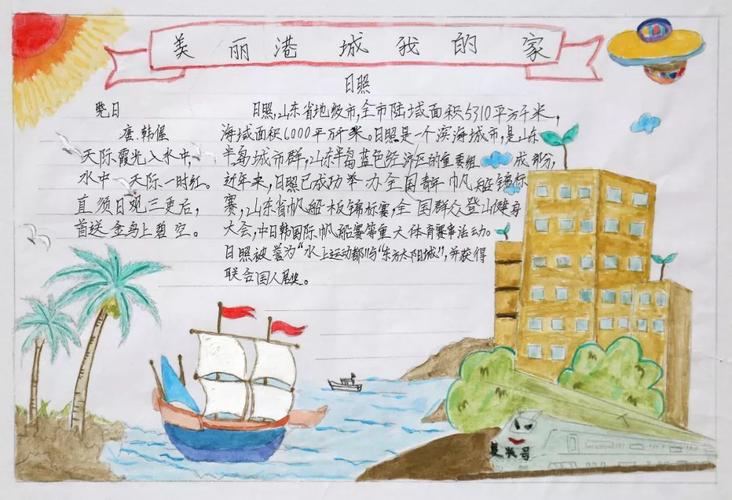 美丽港城我的家
日照
晓日
唐.韩偓
天际霞光入水中,
水中天际一时红。
直须日观三更后,
首送金乌上碧空。
日照,山东省地级市,全市陆域面积5310平方千米,
海域面积6000平方千米。日照是一个滨海城市,是山东
半岛城市群,山东半岛蓝色经济区的重要组成部分,
近年来,日照已成功举办全国青年帆船锦标
赛,山东省帆船板锦标赛,全国群众登山健身
大会,中日韩国际帆船赛等重大体育赛事活动。
日照被誉为“水上运动都”与“东方太阳城”,并获得
联合国人居奖。
复兴号